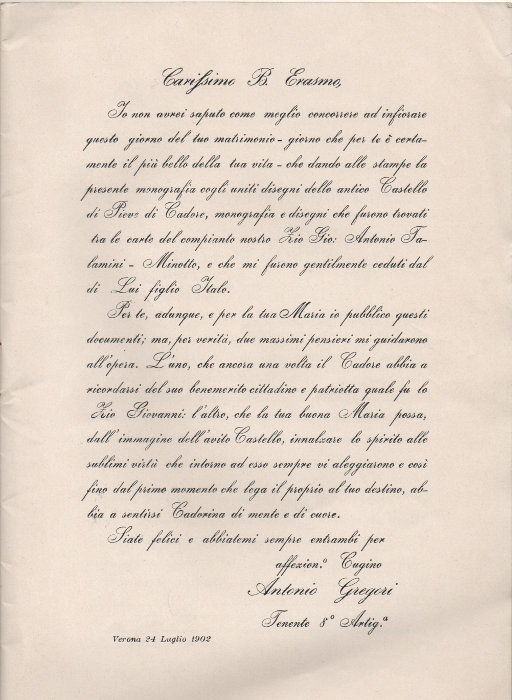 Carissimo B. Erasmo,
Io non avrei saputo come meglio concorrere ad infiorare
questo giorno del tuo matrimonio - giorno che per te è certa-
mente il più bello della tua vita - che dando alle stampe la
presente monografia cogli uniti disegni dello antico Castello
di Pieve di Cadore, monografia e disegni che furono trovati
tra le carte del compianto nostro Zio Gio: Antonio Ta-
lamini - Minotto, e che mi furono gentilmente ceduti dal
di Lui figlio Italo.
Per te, adunque, e per la tua Maria io pubblico questi
documenti; ma, per verità, due massimi pensieri mi guidarono
all'opera. L'uno, che ancora una volta il Cadore abbia a
ricordarsi del suo benemerito cittadino e patriotta quale fu lo
Zio Giovanni: l'altro, che la tua buona Maria possa,
dall'immagine dell'avito Castello, innalzare lo spirito alle
sublimi virtù che intorno ad esso sempre vi aleggiarono e così
fino dal primo momento che lega il proprio al tuo destino, ab-
bia a sentirsi Cadorina di mente e di cuore.
Siate felici e abbiatemi sempre entrambi per
affezion.º Cugino
Antonio Gregori
Tenente 8º Artig.ª
Verona 24 Luglio 1902